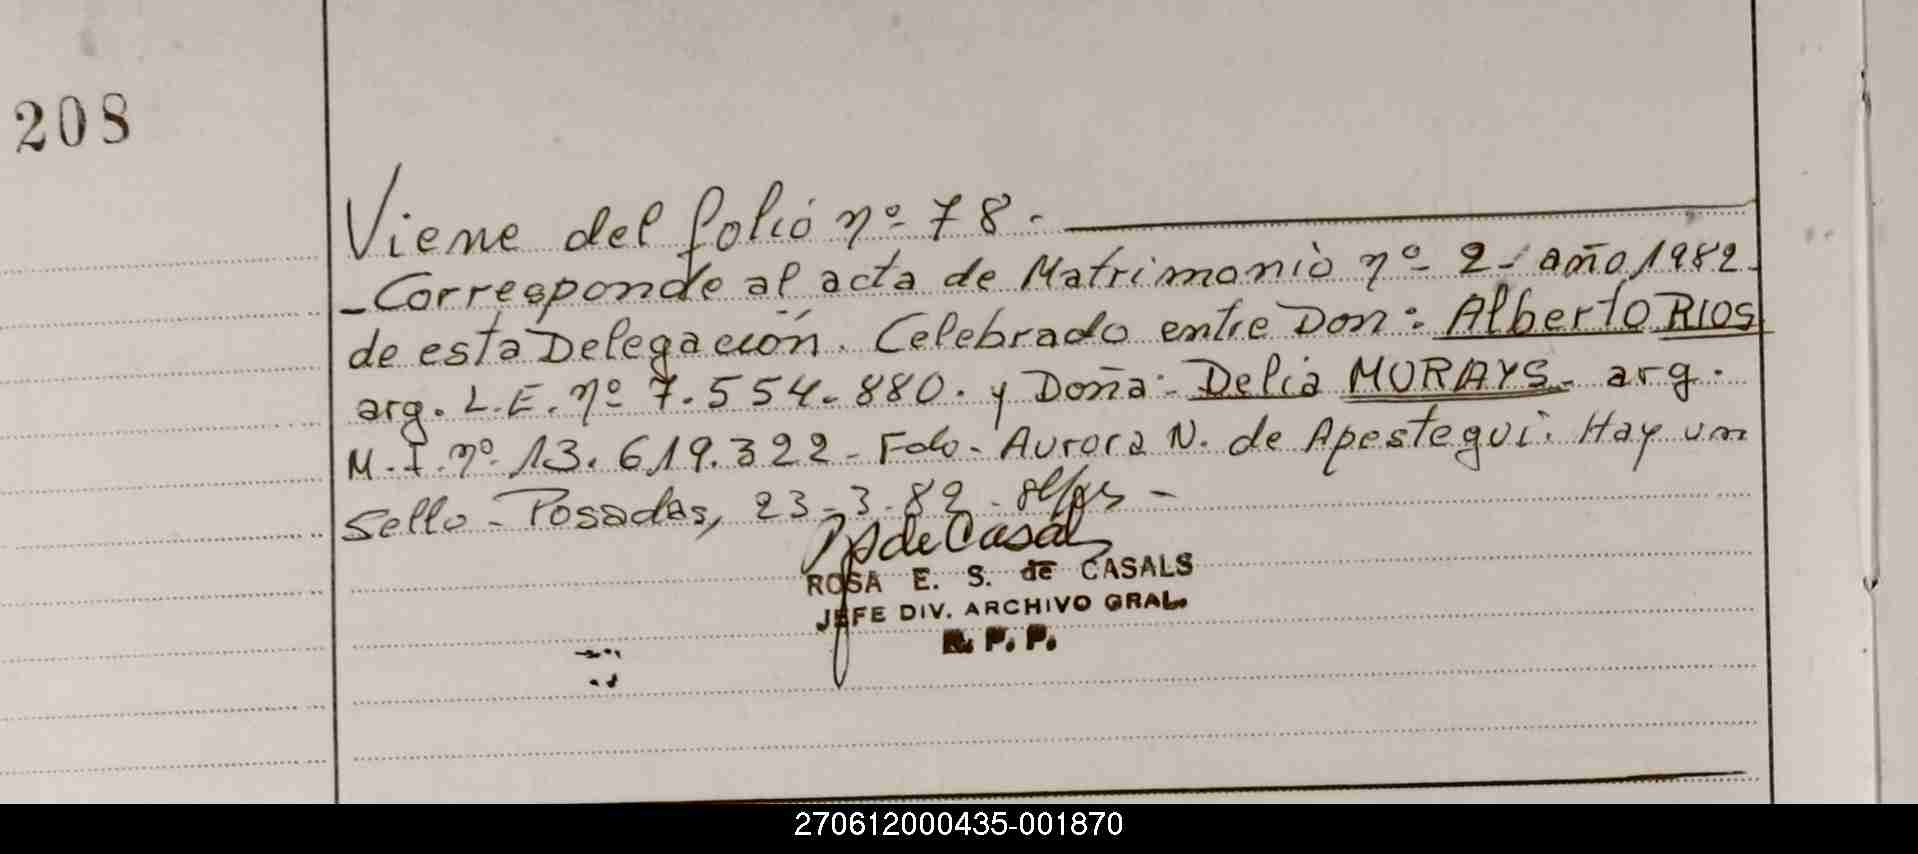 208
Viene del folio nº 78.
- Corresponde al acta de Matrimonio nº 2 - año 1982.
de esta Delegación. Celebrado entre Don: Alberto RIOS
arg. L.E. nº 7.554.880. y Doña: Delia MURAYS. arg.
M.I. nº 13.619.322 - Fdo. Aurora N. de Apestegui. Hay un
Sello - Posadas, 23-3-82 -
de Casals
ROSA E. S. de CASALS
JEFE DIV. ARCHIVO GRAL.
R. P. P.
270612000435-001870